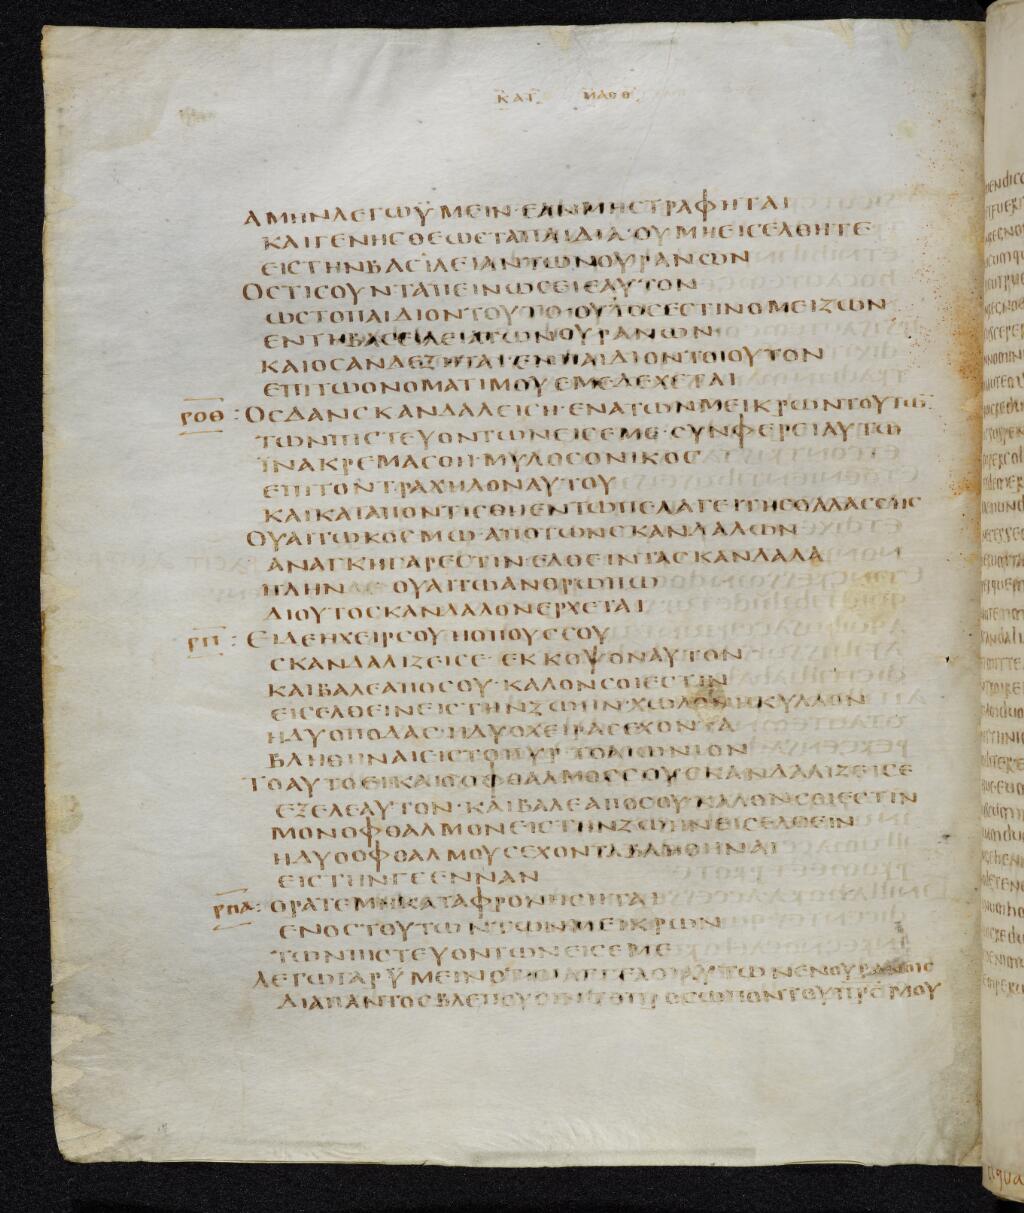 ΚΑΤ ΜΑΘΘ
ΑΜΗΝΛΕΓΩΫΜΕΙΝ·ΕΑΝΜΗΣΤΡΑΦΗΤΑΙ
ΚΑΙΓΕΝΗΣΘΕΩΣΤΑΠΑΙΔΙΑ·ΟΥΜΗΕΙΣΕΛΘΗΤΕ
ΕΙΣΤΗΝΒΑΣΙΛΕΙΑΝΤΩΝΟΥΡΑΝΩΝ
ΟΣΤΙΣΟΥΝΤΑΠΕΙΝΩΣΕΙΕΑΥΤΟΝ
ΩΣΤΟΠΑΙΔΙΟΝΤΟΥΤΟ·ΟΥΤΟΣΕΣΤΙΝΟΜΕΙΖΩΝ
ΕΝΤΗΒΑΣΕΙΛΕΙΑΤΩΝΟΥΡΑΝΩΝ·
ΚΑΙΟΣΑΝΔΕΞΗΤΑΙ·ΕΝΠΑΙΔΙΟΝΤΟΙΟΥΤΟΝ
ΕΠΙΤΩΟΝΟΜΑΤΙΜΟΥΕΜΕΔΕΧΕΤΑΙ
ΡΟΘ : ΟΣΔΑΝΣΚΑΝΔΑΛΕΙΣΗ·ΕΝΑΤΩΝΜΕΙΚΡΩΝΤΟΥΤΩ
ΤΩΝΠΙΣΤΕΥΟΝΤΩΝΕΙΣΕΜΕ·ΣΥΝΦΕΡΕΙΑΥΤΩ
ΪΝΑΚΡΕΜΑΣΘΗ·ΜΥΛΟΣΟΝΙΚΟΣ
ΕΠΙΤΟΝΤΡΑΧΗΛΟΝΑΥΤΟΥ
ΚΑΙΚΑΤΑΠΟΝΤΙΣΘΗΕΝΤΩΠΕΛΑΓΕΙΤΗΣΘΑΛΑΣΣΗΣ
ΟΥΑΙΤΩΚΟΣΜΩ·ΑΠΟΤΩΝΣΚΑΝΔΑΛΩΝ
ΑΝΑΓΚΗΓΑΡΕΣΤΙΝ·ΕΛΘΕΙΝΤΑΣΚΑΝΔΑΛΑ
ΠΛΗΝΔΕ ΟΥΑΙΤΩΑΝΘΡΩΠΩ
ΔΙΟΥΤΟΣΚΑΝΔΑΛΟΝΕΡΧΕΤΑΙ
ΡΠ : ΕΙΔΕΗΧΕΙΡΣΟΥΗΟΠΟΥΣΣΟΥ
ΣΚΑΝΔΑΛΙΖΕΙΣΕ· ΕΚΚΟΨΟΝΑΥΤΟΝ
ΚΑΙΒΑΛΕΑΠΟΣΟΥ·ΚΑΛΟΝΣΟΙΕΣΤΙΝ
ΕΙΣΕΛΘΕΙΝΕΙΣΤΗΝΖΩΗΝ·ΧΩΛΟΝΗΚΥΛΛΟΝ
ΗΔΥΟΠΟΔΑΣ·ΗΔΥΟΧΕΙΡΑΣΕΧΟΝΤΑ
ΒΛΗΘΗΝΑΙΕΙΣΤΟΠΥΡ ΤΟΑΙΩΝΙΟΝ
ΤΟΑΥΤΟΕΙΚΑΙΟΟΦΘΑΛΜΟΣΣΟΥΣΚΑΝΔΑΛΙΖΕΙΣΕ
ΕΞΕΛΕΑΥΤΟΝ·ΚΑΙΒΑΛΕΑΠΟΣΟΥ·ΚΑΛΟΝΣΟΙΕΣΤΙΝ
ΜΟΝΟΦΘΑΛΜΟΝΕΙΣΤΗΝΖΩΗΝΕΙΣΕΛΘΕΙΝ
ΗΔΥΟΟΦΘΑΛΜΟΥΣΕΧΟΝΤΑΒΛΗΘΗΝΑΙ
ΕΙΣΤΗΝΓΕΕΝΝΑΝ
ΡΠΑ : ΟΡΑΤΕΜΗΚΑΤΑΦΡΟΝΗΣΗΤΑΙ
ΕΝΟΣΤΟΥΤΩΝΤΩΝΜΕΙΚΡΩΝ
ΤΩΝΠΙΣΤΕΥΟΝΤΩΝΕΙΣΕΜΕ
ΛΕΓΩΓΑΡΫΜΕΙΝΟΤΙΟΙΑΓΓΕΛΟΙΑΥΤΩΝΕΝΟΥΡΑΝΟΙΣ
ΔΙΑΠΑΝΤΟΣΒΛΕΠΟΥΣΙΝΤΟΠΡΟΣΩΠΟΝΤΟΥΠΡΣΜΟΥ